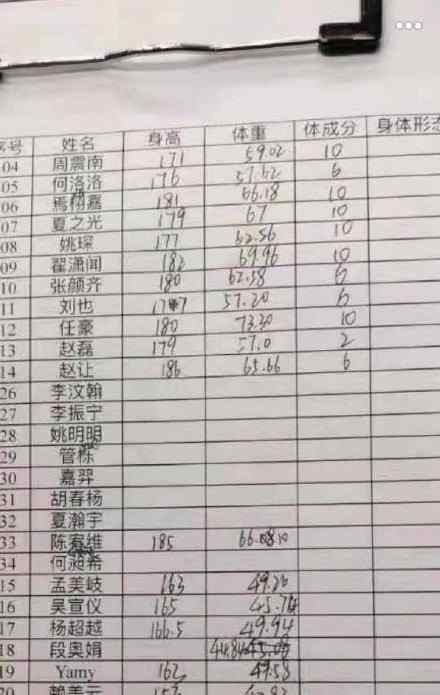 序号 姓名 身高 体重 体成分 身体形态
04 周震南 171 59.02 10
05 何洛洛 176 57.62 6
06 焉栩嘉 181 66.18 10
07 夏之光 179 67 10
08 姚琛 177 62.56 10
09 翟潇闻 182 69.96 10
10 张颜齐 180 62.58 6
11 刘也 177 57.20 6
12 任豪 180 73.30 10
13 赵磊 179 57.0 2
14 赵让 186 65.66 6
26 李汶翰
27 李振宁
28 姚明明
29 管栎
30 嘉羿
31 胡春杨
32 夏瀚宇
33 陈宥维 185
34 何昶希
15 孟美岐 163 49.26
16 吴宣仪 165 45.74
17 杨超越 166.5 49.94
18 段奥娟
19 Yamy 162 49.58
20 赖美云